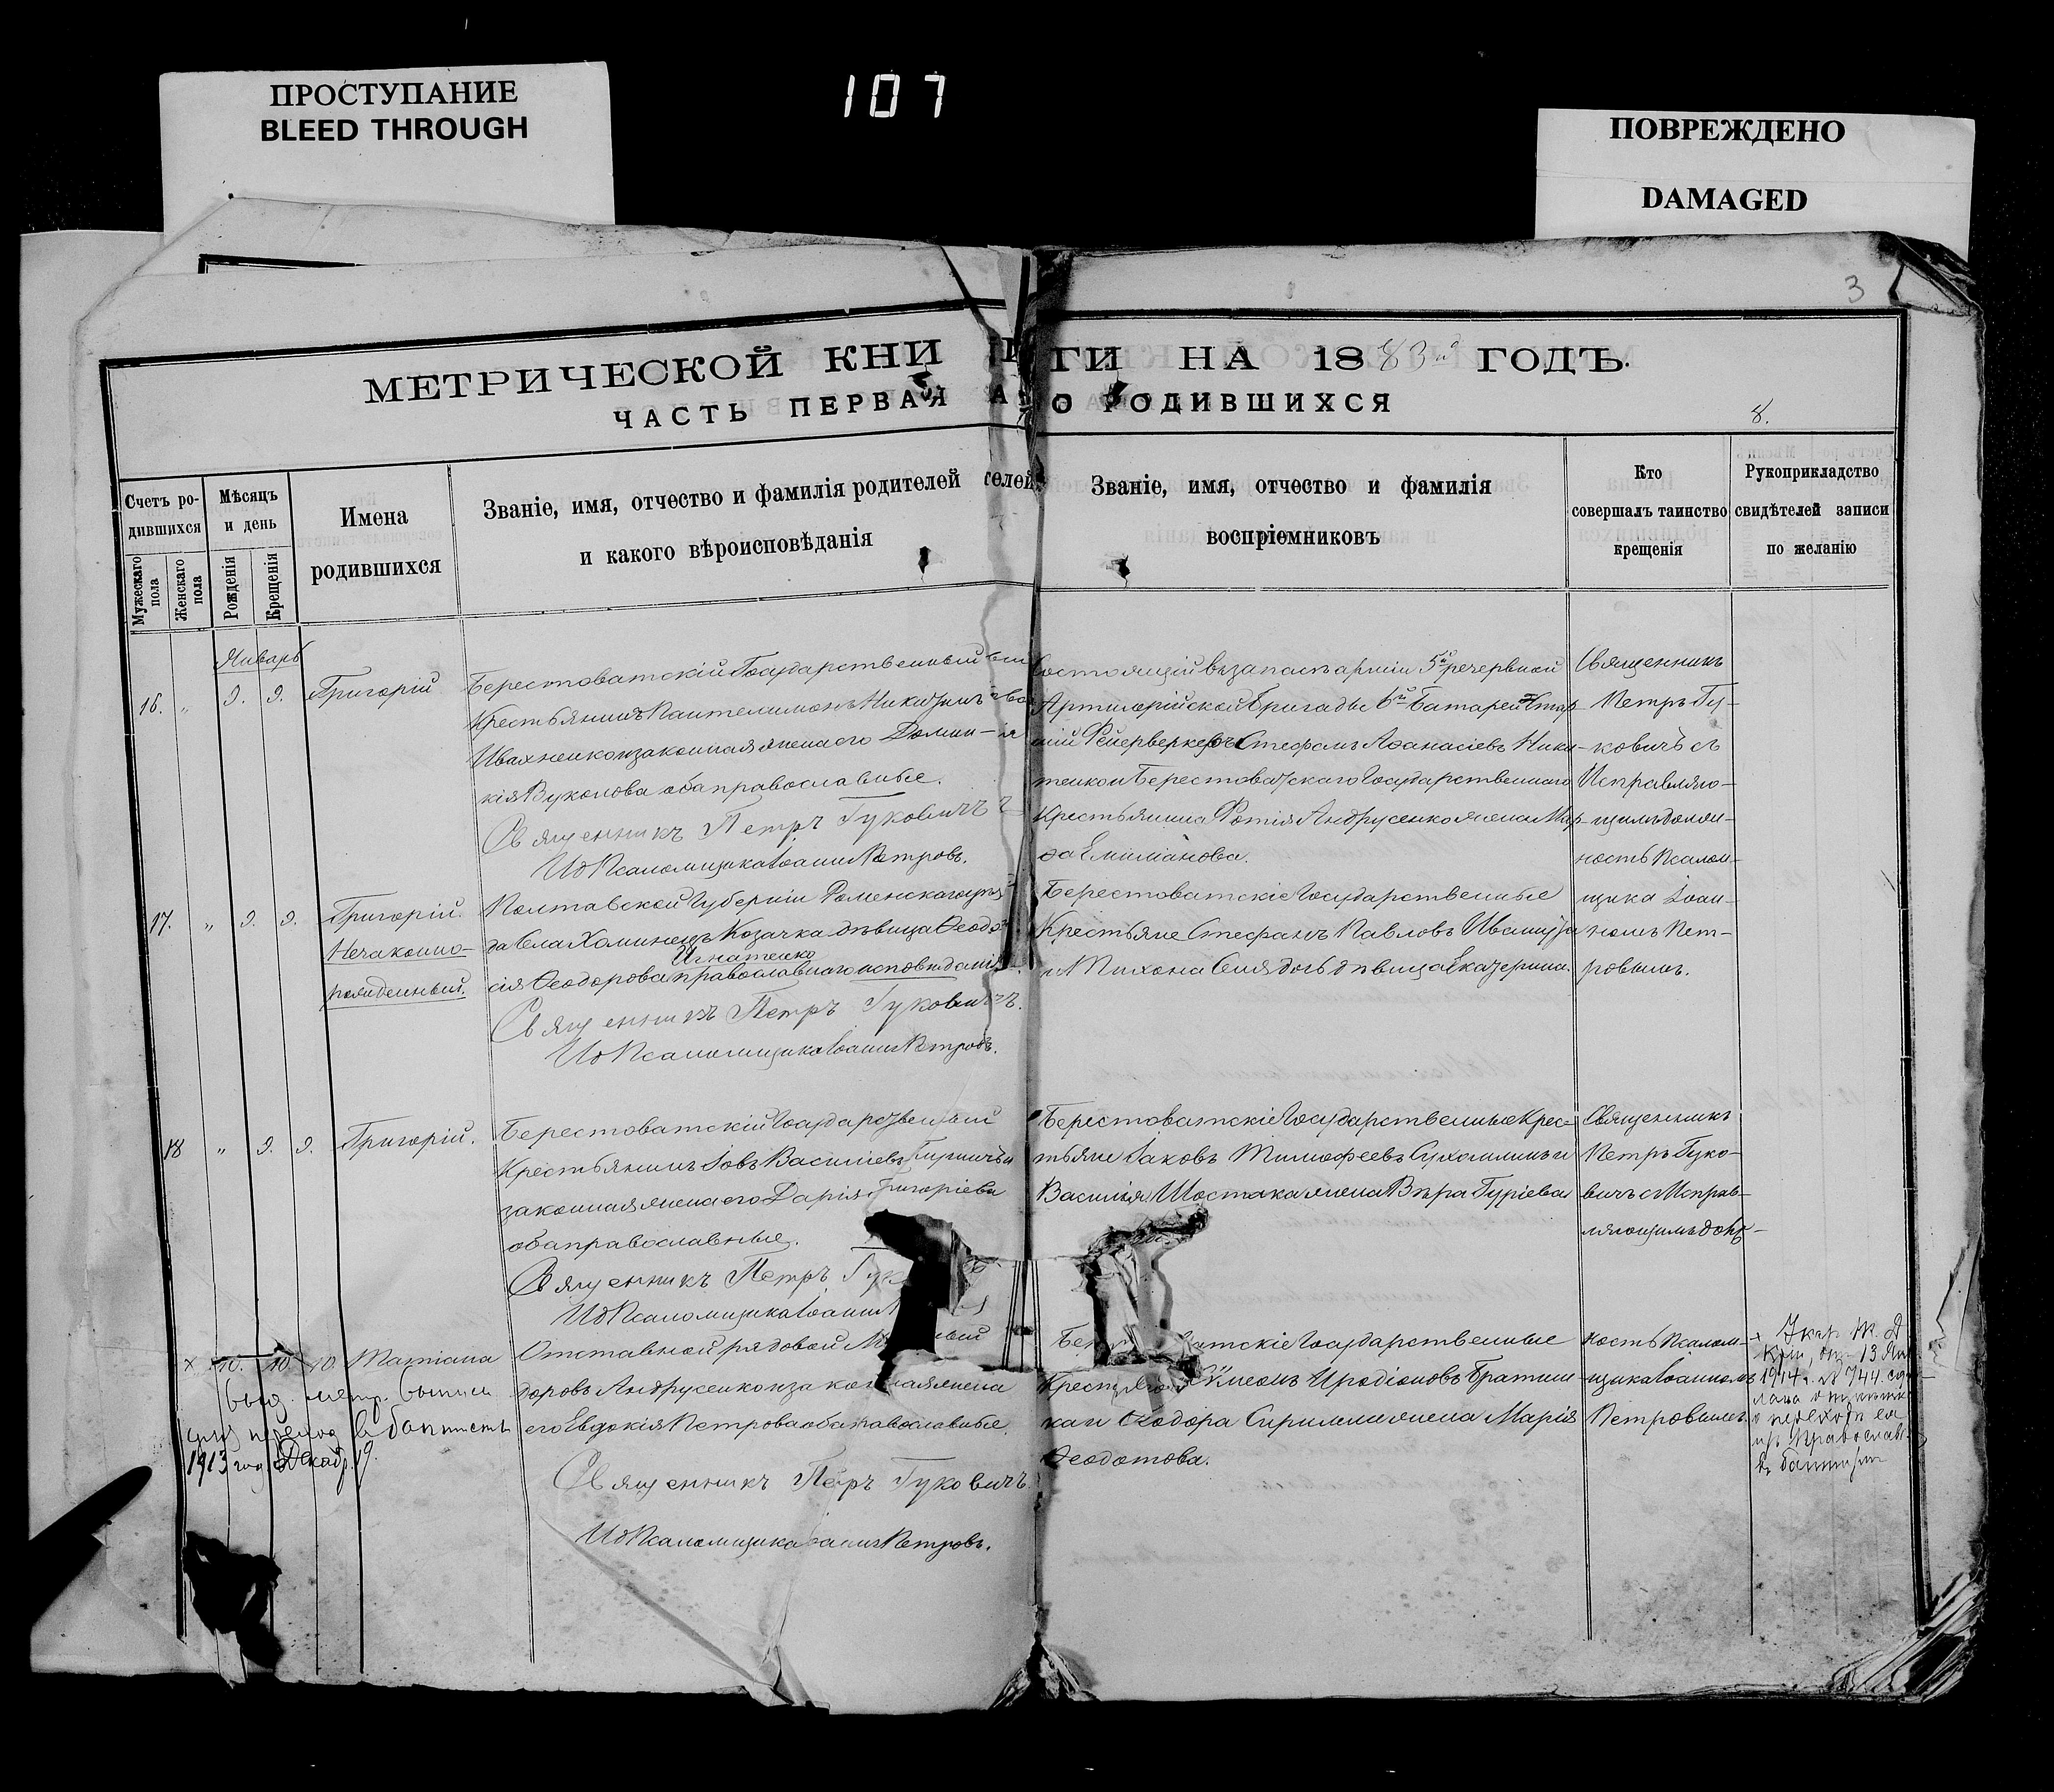 ПРОСТУПАНИЕ
BLEED THROUGH
107
ПОВРЕЖДЕНО
DAMAGED
3
МЕТРИЧЕСКОЙ КНИ ГИ НА 1883й ГОДЪ.
ЧАСТЬ ПЕРВАЯ О РОДИВШИХСЯ
8.
Счетъ ро-
дившихся
Мужескаго пола
Женскаго пола
Мѣсяцъ
и день
Рожденія
Крещенія
Имена
родившихся
Званіе, имя, отчество и фамилія родителей
и какого вѣроисповѣданія
Званіе, имя, отчество и фамилія
воспріемниковъ
Кто
совершалъ таинство
крещенія
Рукоприкладство
свидѣтелей записи
по желанію
Январь
16. " 9. 9. Григорій
Берестоватскій Государственный
Крестьянинъ Пантелимонъ Никитинъ
Ивахненко и законная жена его Домни-
кія Вуколова оба православные.
Священникъ Петръ Гуковичъ
Ид Псаломщика Іоаннъ Петровъ.
Состоящій въ запасѣ арміи 5й резервной
Артилерійской Бригады 6й Батареи Стар-
шій Фейерверкеръ Стефанъ Аѳанасіевъ Ники-
тенко и Берестоватскаго Государственнаго
Крестьянина Фотія Андрусенко жена Мар-
ѳа Емиліанова.
Священникъ
Петръ Гу-
ковичъ съ
Исправляю-
щимъ долж-
ность Псалом-
щика Іоан-
номъ Пет-
ровымъ.
17. " 9. 9. Григорій.
Незаконно-
рожденный.
Полтавской Губерніи Роменскаго уѣз-
да Села Хоминецъ Козачка дѣвица Ѳеодо-
Игнатенко
сія Ѳеодорова православнаго исповѣданія.
Священникъ Петръ Гуковичъ.
Ид Псаломщика Іоаннъ Петровъ.
Берестоватскіе Государственные
Крестьяне Стефанъ Павловъ
и Тихона дочь дѣвица Екатерина.
18 " 9. 9. Григорій.
Берестоватскій Государственный
Крестьянинъ Іовъ Василіевъ и
законная жена его Дарія Григоріева
оба православные.
Священникъ Петръ Гук
Ид Псаломщика Іоаннъ
Берестоватскіе Государственные Крес-
тьяне Іаковъ Тимофеевъ Сухомлинъ и
Василія Шостака жена Вѣра Гуріева
Священникъ
Петръ Гуко-
вичъ съ Исправ-
ляющимъ долж-
х 10. 10. 10. Татіана
выд. метр. выпись
переход въ баптистъ
1913 год Декабр. 19.
Отставной рядовой
доровъ Андрусенко и законная жена
его Евдокія Петрова оба православные.
Священникъ Петръ Гуковичъ
Ид Псаломщика Іоаннъ Петровъ.
Государственные
Сѵмеонъ Иродіоновъ Братиш-
ка и Ѳеодора жена Марія
Ѳеодотова.
ность Псалом-
щика Іоанномъ
Петровымъ.
1914 г. № 744
о переходѣ ея
изъ Православ.
въ